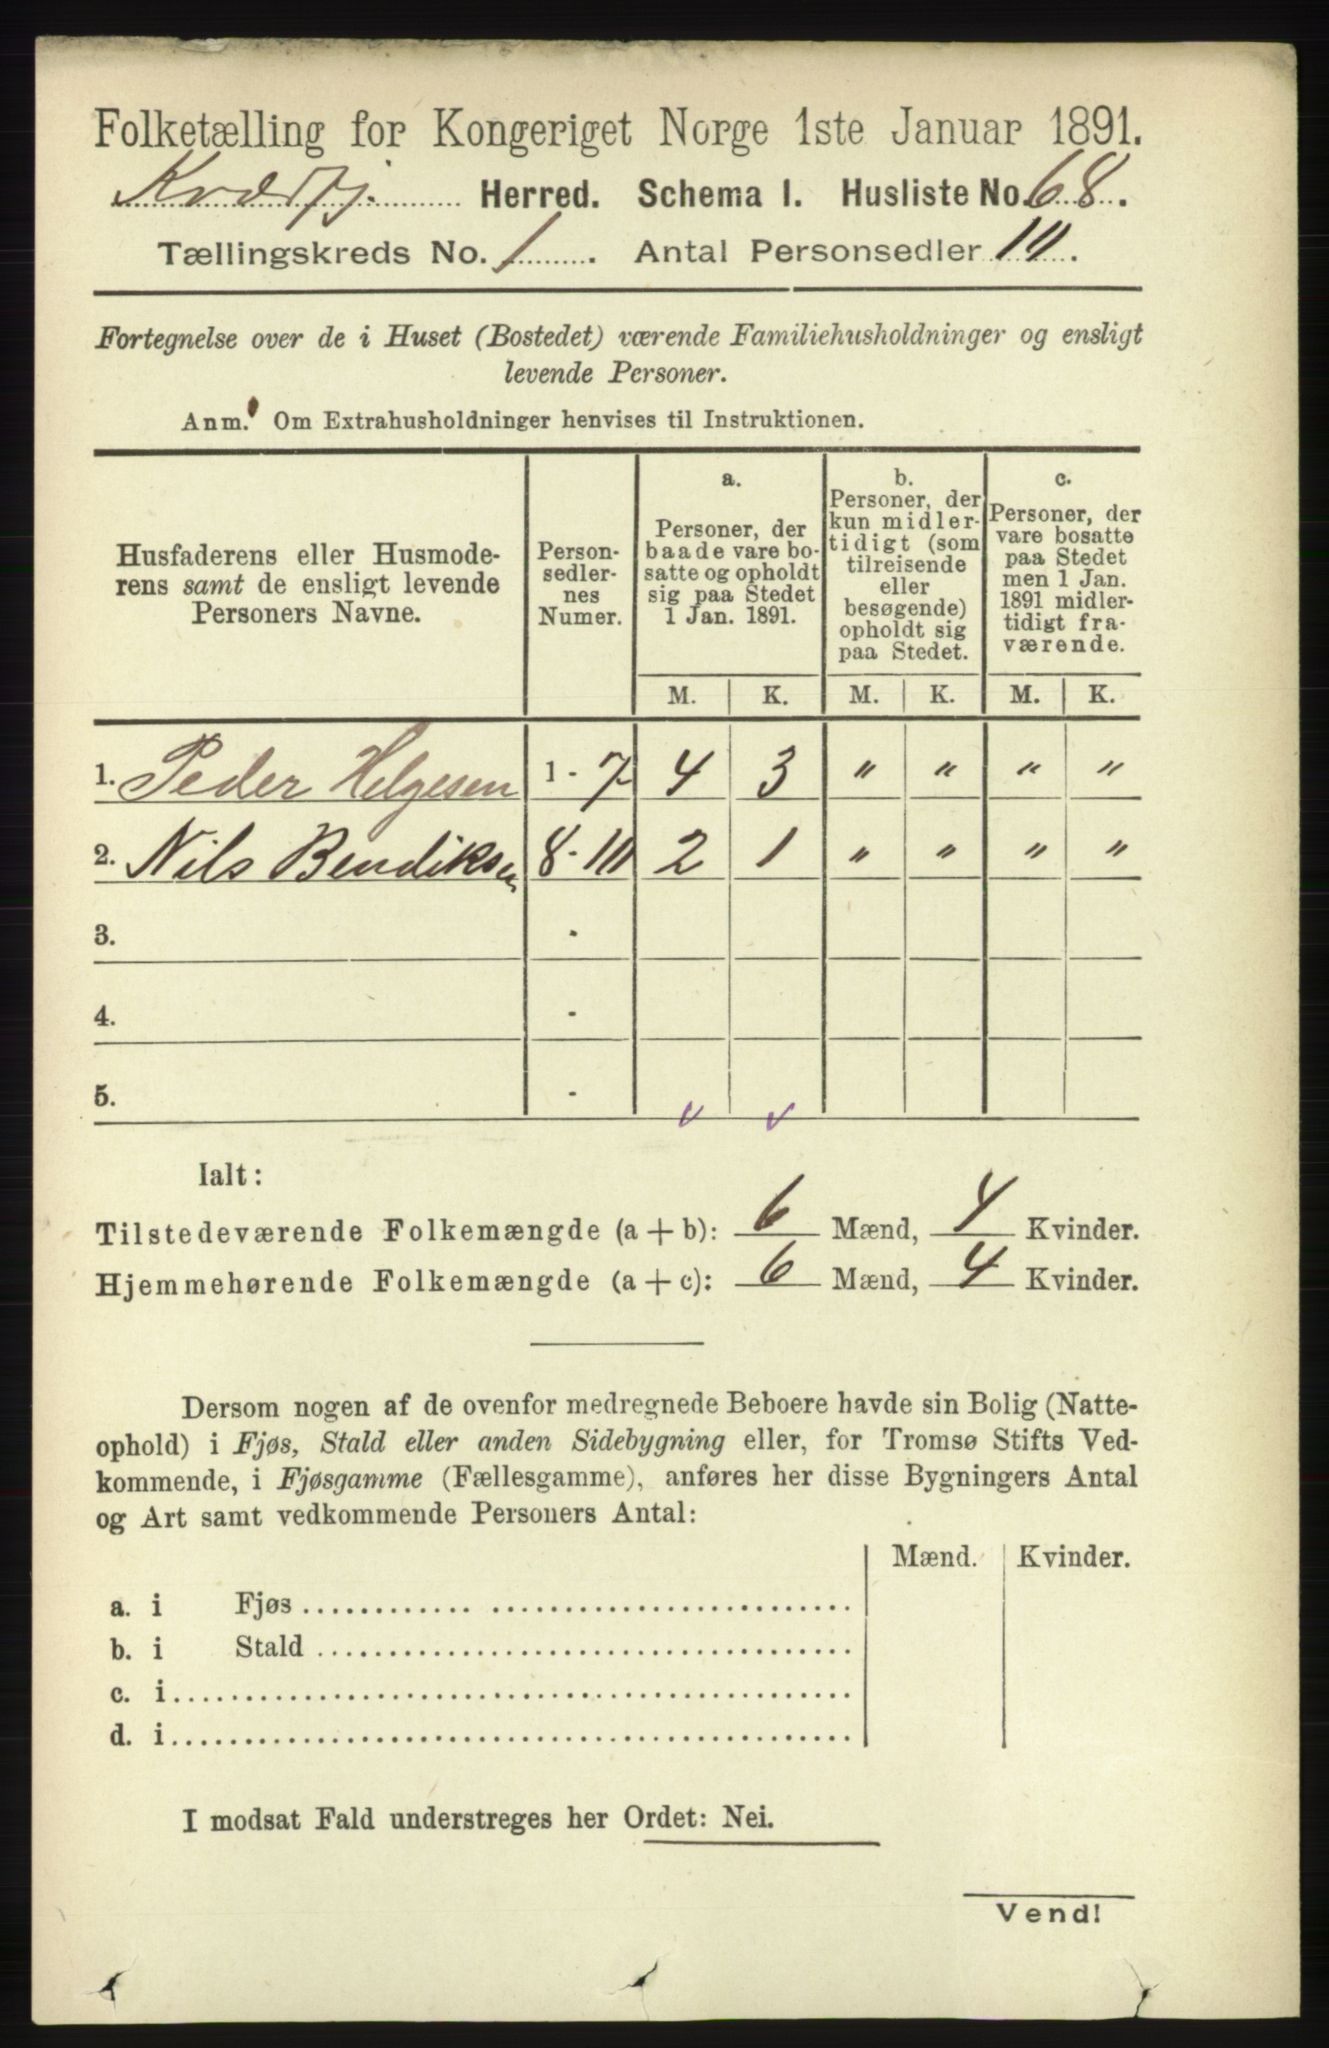 Folketælling for Kongeriget Norge 1ste Januar 1891.
Kvædfj. Herred. Schema I. Husliste No. 68.
Tællingskreds No. 1. Antal Personsedler 10.
Fortegnelse over de i Huset (Bostedet) værende Familiehusholdninger og ensligt
levende Personer.
Anm. Om Extrahusholdninger henvises til Instruktionen.
Husfaderens eller Husmode-
rens samt de ensligt levende
Personers Navne.
Person-
sedler-
nes
Numer.
a.
Personer, der
baade vare bo-
satte og opholdt
sig paa Stedet
1 Jan. 1891.
b.
Personer, der
kun midler-
tidigt (som
tilreisende
eller
besøgende)
opholdt sig
paa Stedet.
c.
Personer, der
vare bosatte
paa Stedet
men 1 Jan.
1891 midler-
tidigt fra-
værende.
M. K. M. K. M. K.
1. Peder Helgesen 1 - 7 4 3 " " " "
2. Nils Bendiksen 8 - 10 2 1 " " " "
3. -
4. -
5. -
Ialt:
Tilstedeværende Folkemængde (a + b): 6 Mænd, 4 Kvinder.
Hjemmehørende Folkemængde (a + c): 6 Mænd, 4 Kvinder.
Dersom nogen af de ovenfor medregnede Beboere havde sin Bolig (Natte-
ophold) i Fjøs, Stald eller anden Sidebygning eller, for Tromsø Stifts Ved-
kommende, i Fjøsgamme (Fællesgamme), anføres her disse Bygningers Antal
og Art samt vedkommende Personers Antal:
Mænd. Kvinder.
a. i Fjøs
b. i Stald
c. i
d. i
I modsat Fald understreges her Ordet: Nei.
Vend!